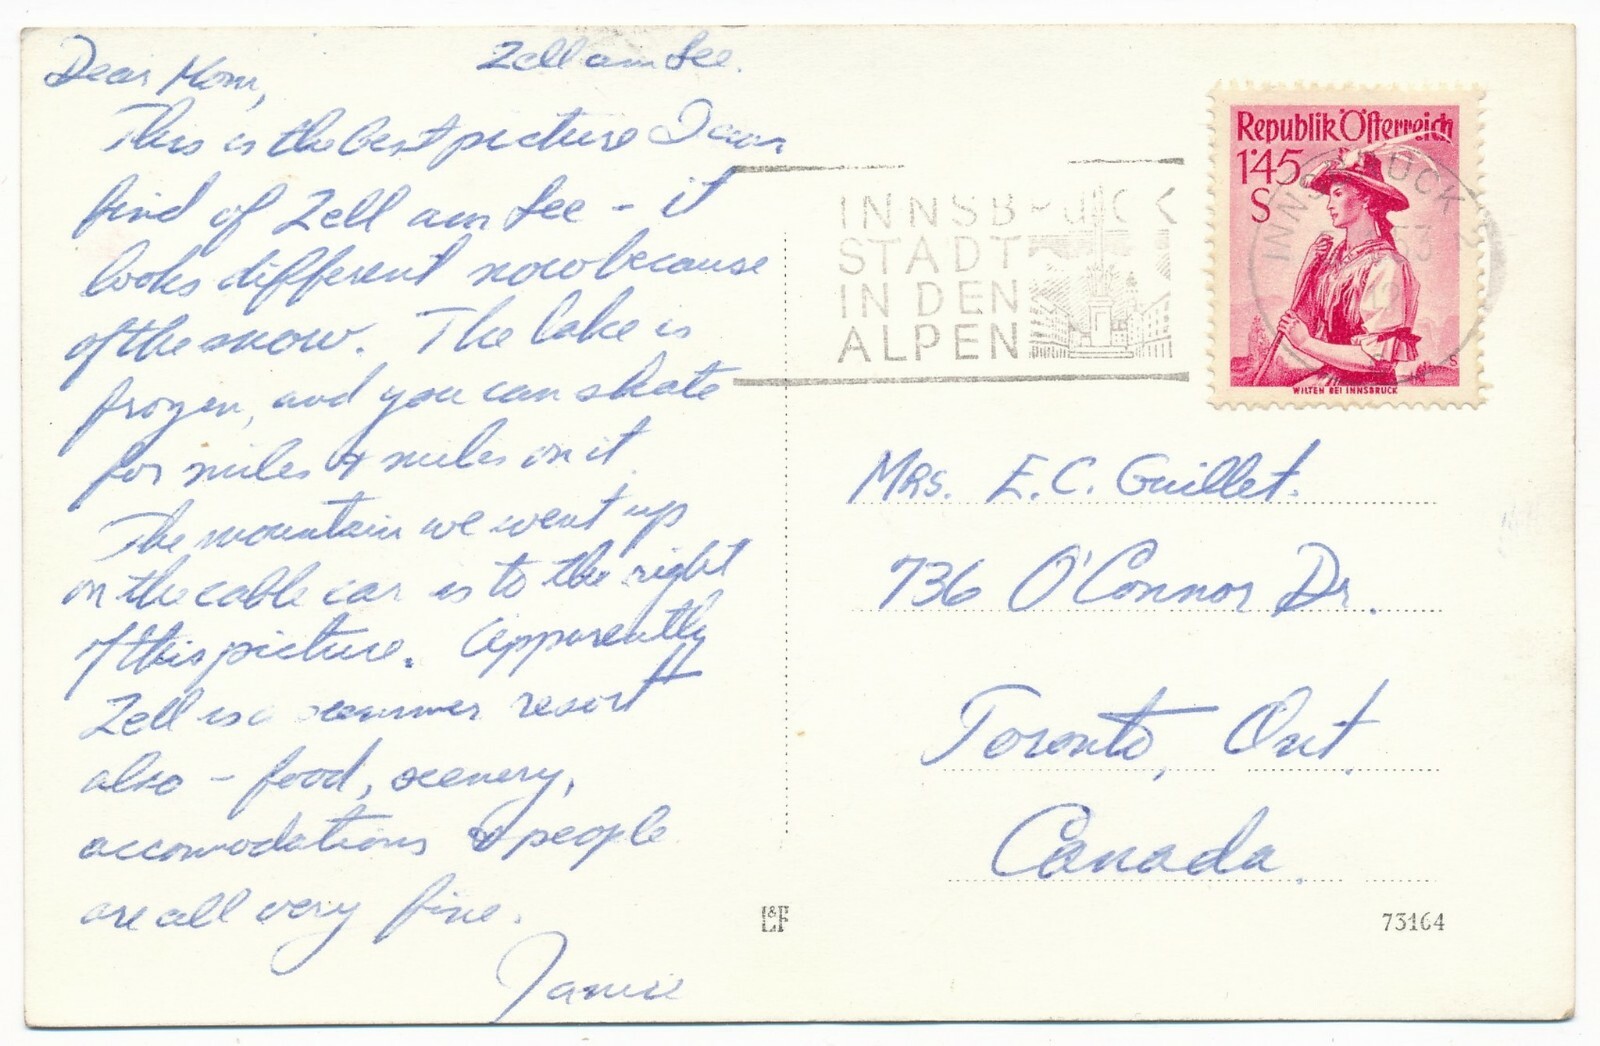 Zell am See.
Dear Mom,
This is the best picture I can
find of Zell am See - it
looks different now because
of the snow. The lake is
frozen, and you can skate
for miles & miles on it.
The mountain we went up
on the cable car is to the right
of this picture. Apparently
Zell is a summer resort
also - food, scenery,
accomodations & people
are all very fine.
Jamie
INNSBRUCK
STADT
IN DEN
ALPEN
Republik Österreich
1'45
S
WILTEN BEI INNSBRUCK
INNSBRUCK 2
53
12
Mrs. E.C. Guillet.
736 O'Connor Dr.
Toronto, Ont.
Canada.
L&P
73164